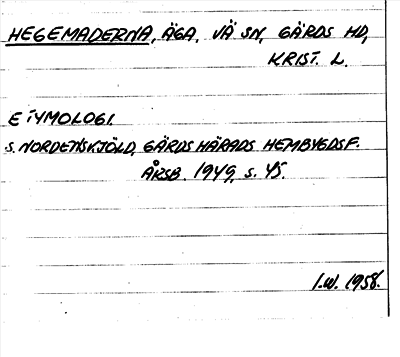 HEGEMADERNA, ÄGA. VÄ SN, GÄRDS HD,
KRIST. L.
ETYMOLOGI.
S. NORDENSKJÖLD, GÄRDS HÄRADS HEMBYGDSF.
ÅRSB. 1949, S. 45.
I.W. 1958.